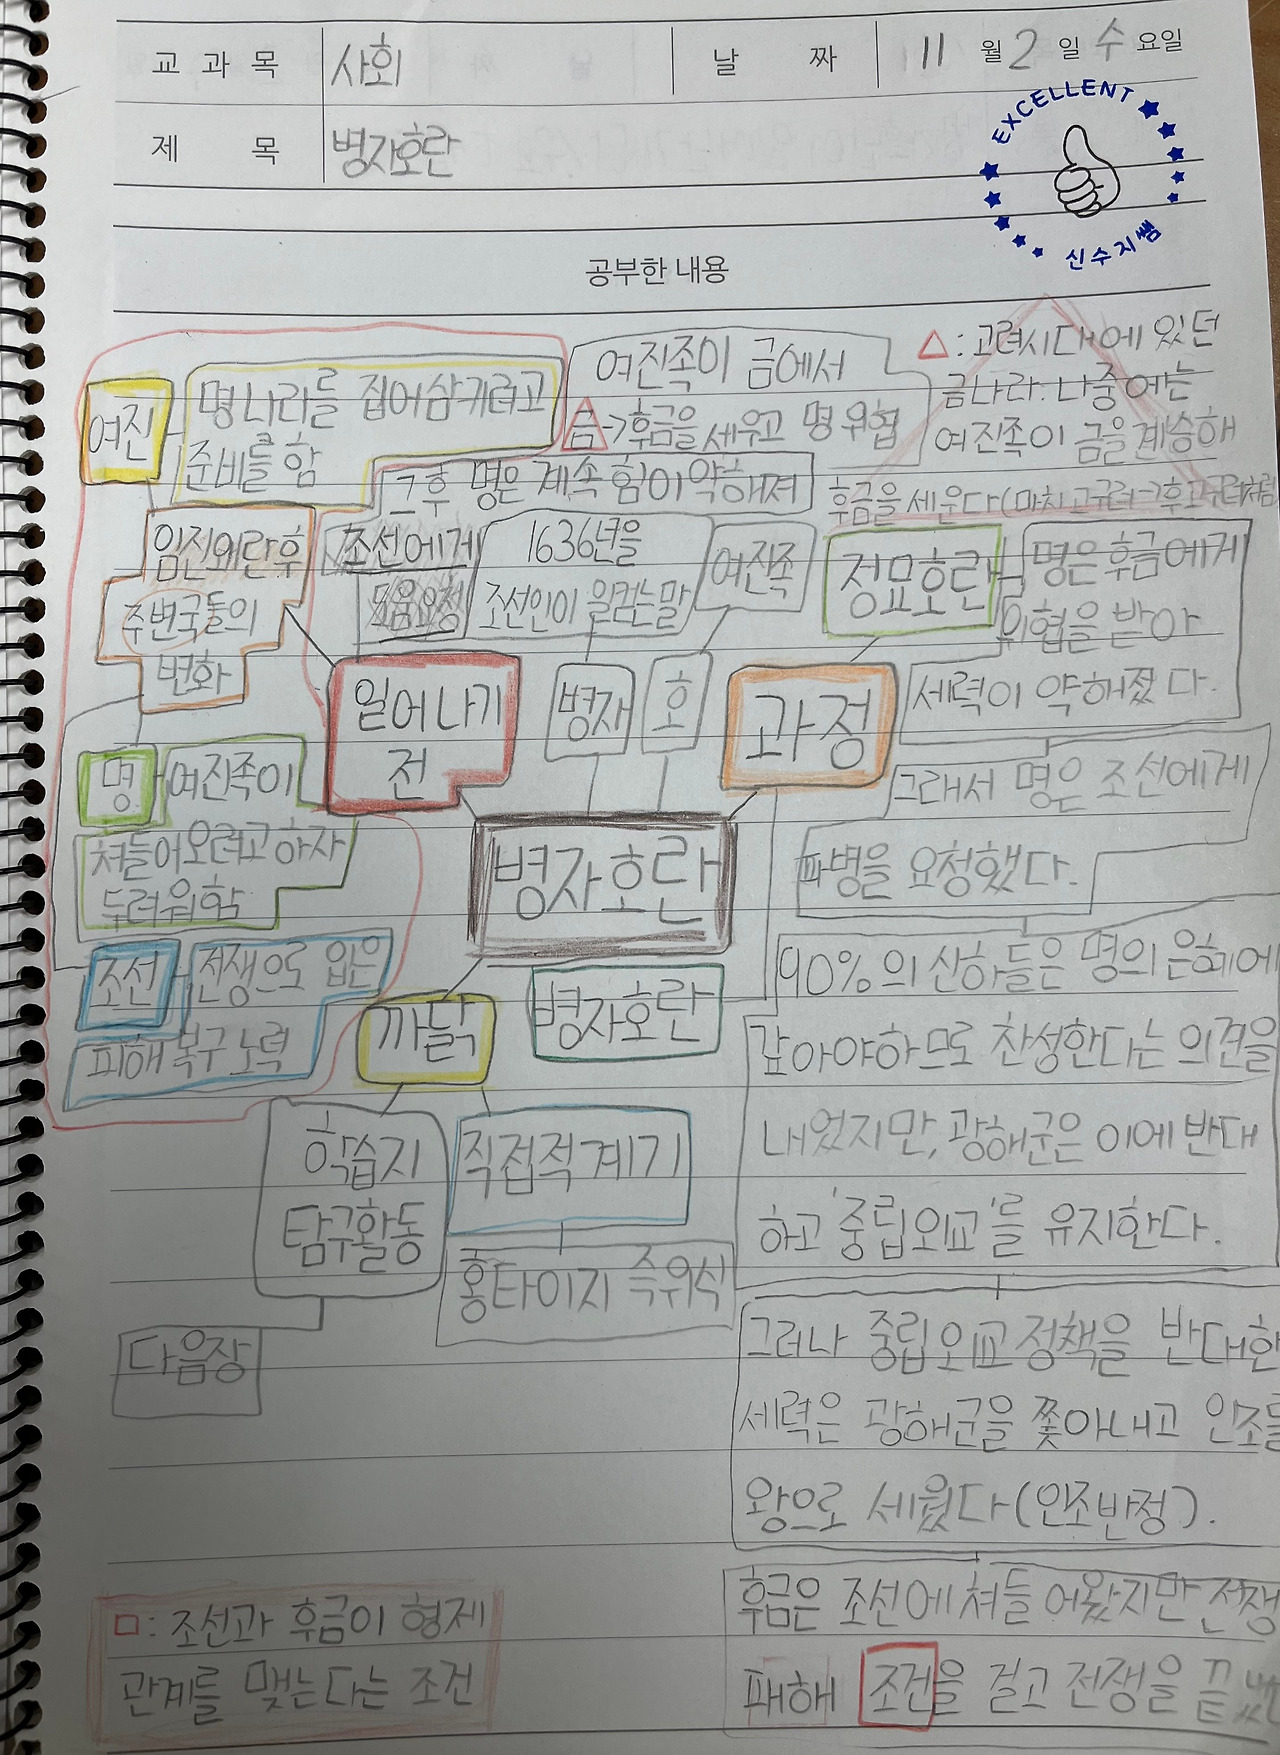 교 과 목 사회 날 짜 11 월 2 일 수 요일
제 목 병자호란
EXCELLENT
신수지쌤
공부한 내용
여진
명나라를 집어삼키려고
준비를 함
여진족이 금에서
금->후금을 세우고 명 위협
△: 고려시대에 있던
금나라. 나중에는
여진족이 금을 계승해
후금을 세운다(마치 고구려->후고구려처럼
그 후 명은 계속 힘이 약해져
조선에게
도움요청
임진왜란 후
주변국들의
변화
1636년을
조선인이 일컫는 말
여진족
정묘호란
명은 후금에게
위협을 받아
세력이 약해졌다.
일어나기
전
병재
호
과정
명
여진족이
쳐들어오려고 하자
두려워함
그래서 명은 조선에게
파병을 요청했다.
병자호란
조선
전쟁으로 입은
피해 복구 노력
까닭
병자호란
90%의 신하들은 명의 은혜에
갚아야하므로 찬성한다는 의견을
내었지만, 광해군은 이에 반대
하고 '중립외교'를 유지한다.
학습지
탐구활동
직접적 계기
홍타이지 즉위식
다음장
그러나 중립외교 정책을 반대한
세력은 광해군을 쫓아내고 인조를
왕으로 세웠다(인조반정).
후금은 조선에 쳐들어왔지만 전쟁
패해 조건을 걸고 전쟁을 끝냈
ㅁ: 조선과 후금이 형제
관계를 맺는다는 조건